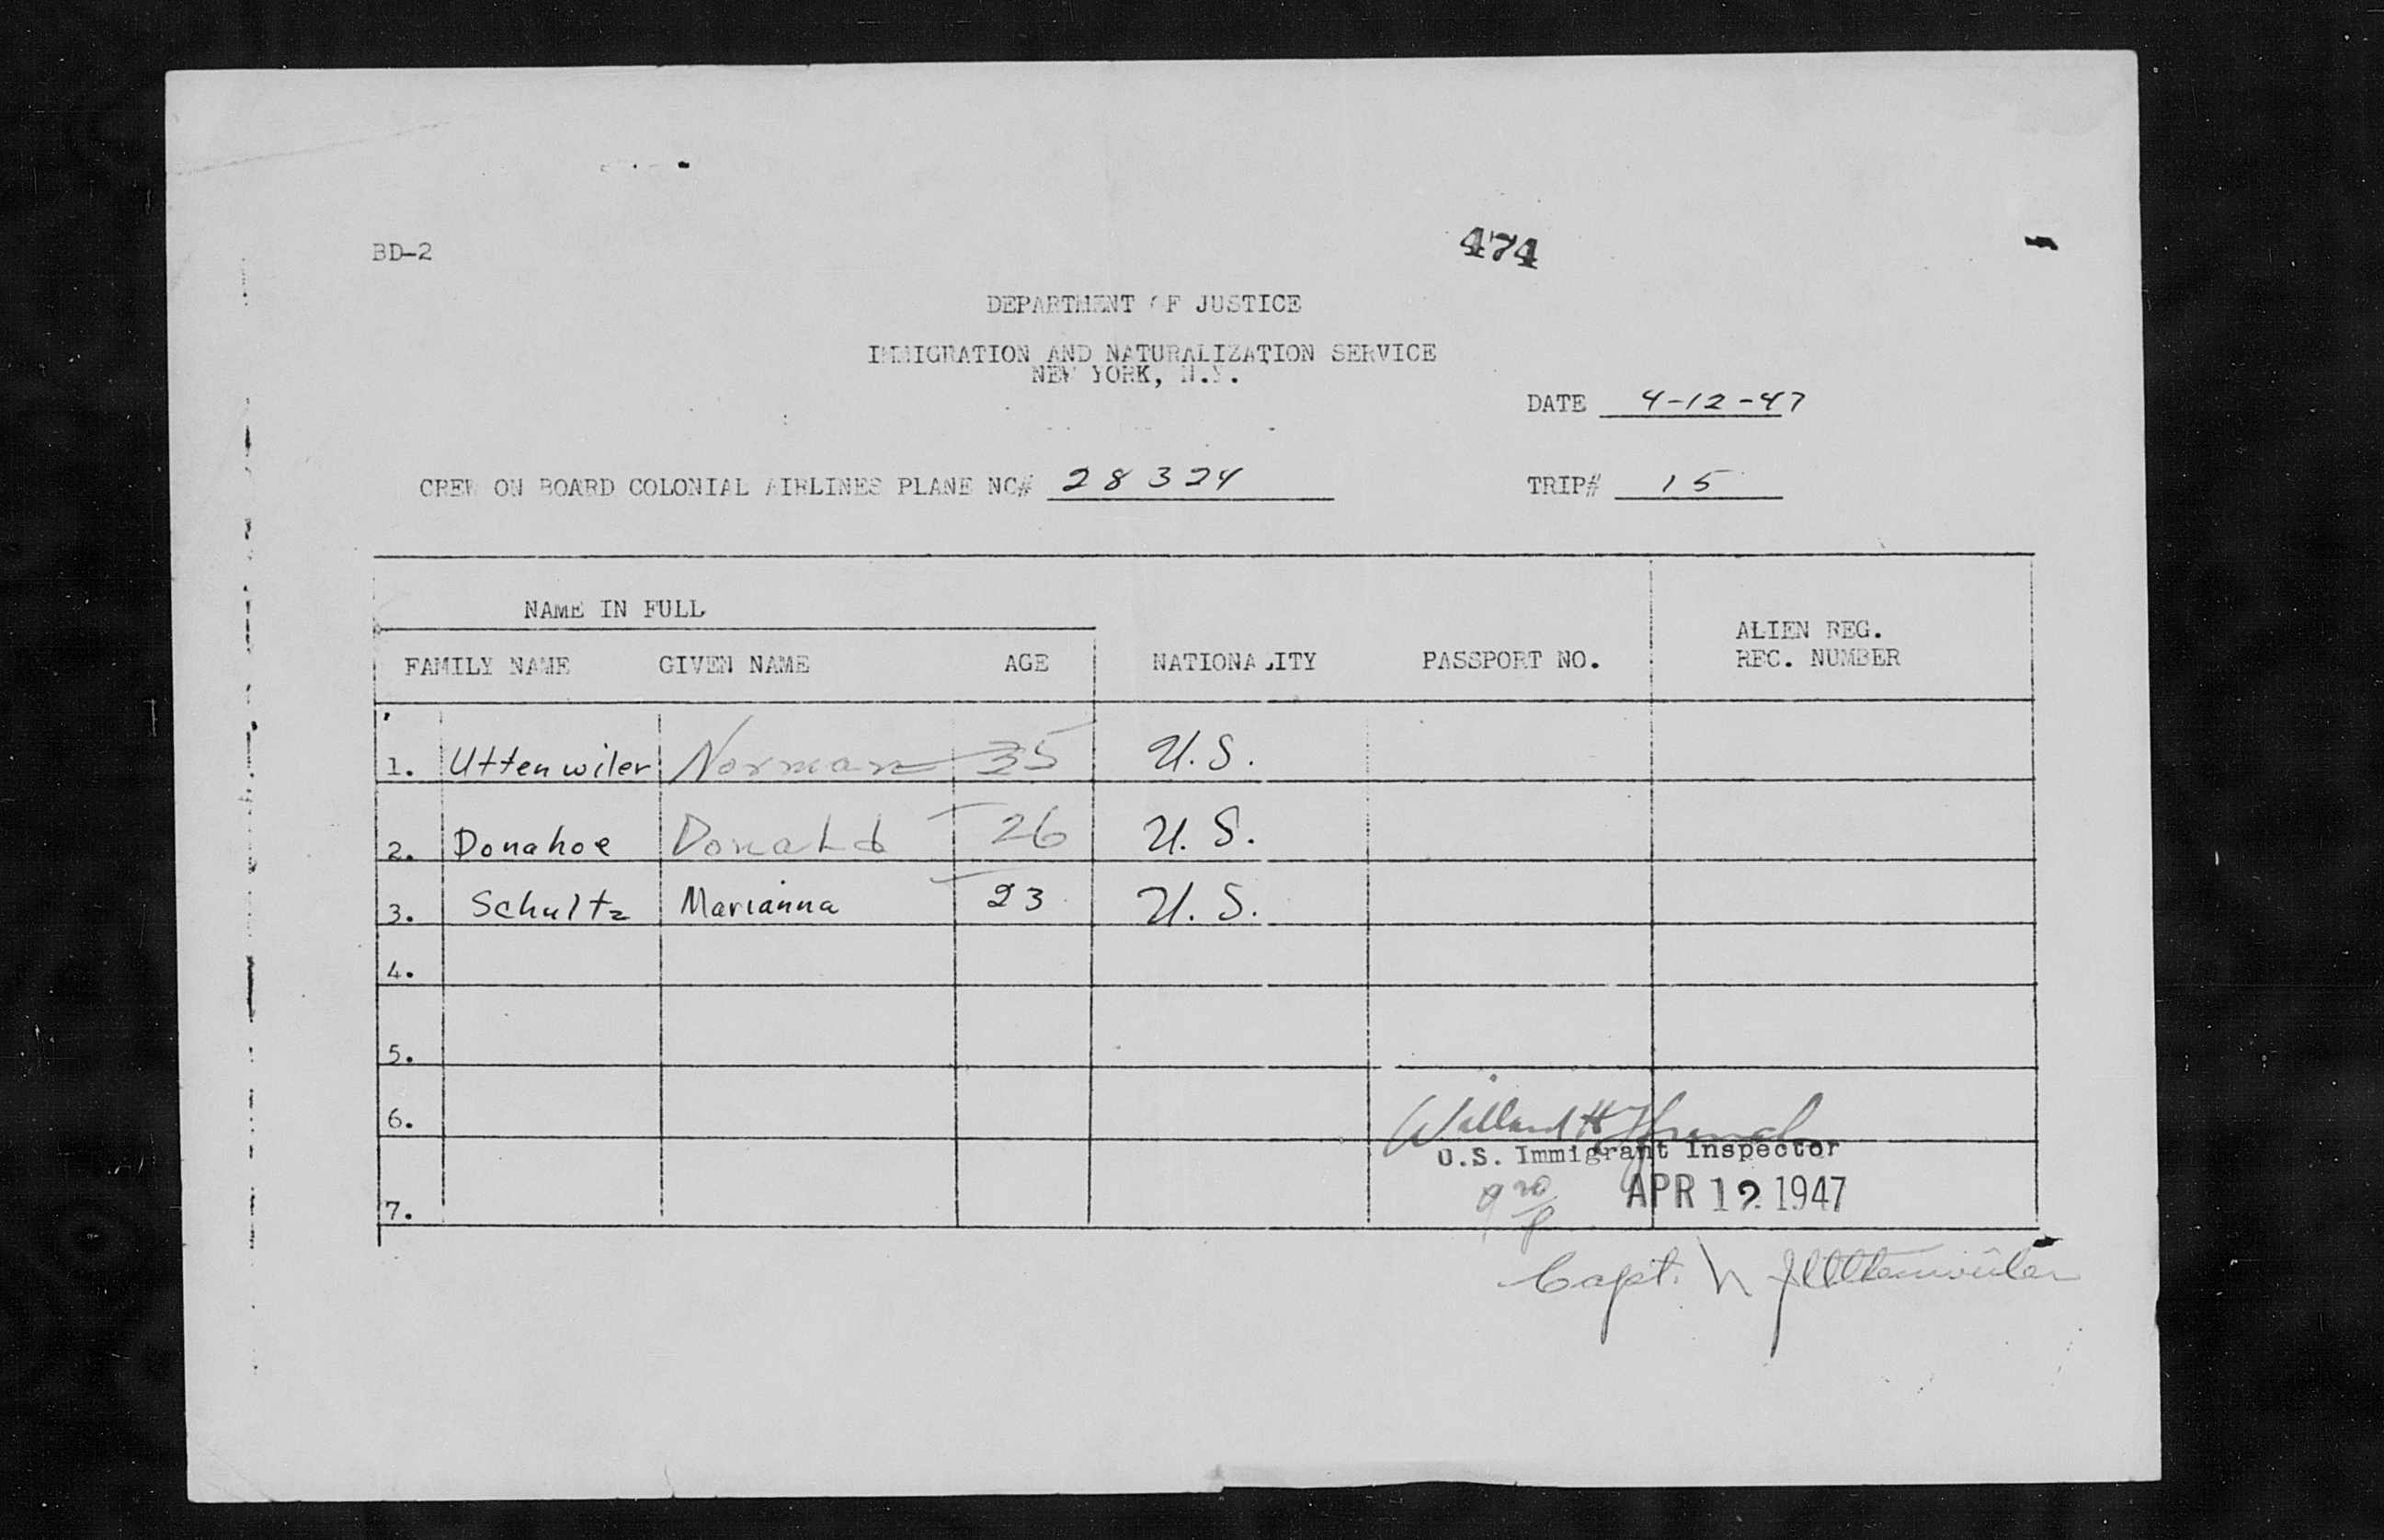 BD-2
474
DEPARTMENT OF JUSTICE
IMMIGRATION AND NATURALIZATION SERVICE
NEW YORK, N.Y.
DATE 4-12-47
CREW ON BOARD COLONIAL AIRLINES PLANE NC# 28324 TRIP# 15
NAME IN FULL
ALIEN REG.
FAMILY NAME GIVEN NAME AGE NATIONALITY PASSPORT NO. REC. NUMBER
1. Uttenwiler Norman 35 U.S.
2. Donahoe Donald 26 U.S.
3. Schultz Marianna 23 U.S.
4.
5.
6. Willard H
U.S. Immigrant Inspector
APR 12 1947
7.
Capt. N Uttenwiler